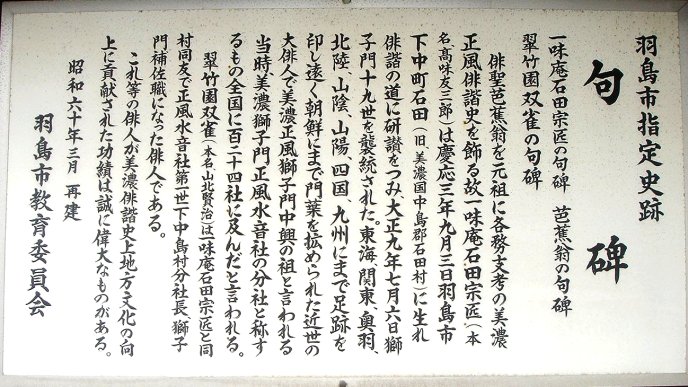 羽島市指定史跡
句碑
一味庵石田宗匠の句碑 芭蕉翁の句碑
翠竹園双雀の句碑
俳聖芭蕉翁を元祖に各務支考の美濃
正風俳諧史を飾る故一味庵石田宗匠(本
名、高味友三郎)は慶応三年九月三日羽島市
下中町石田(旧、美濃国中島郡石田村)に生れ
俳諧の道に研鑚をつみ大正九年七月六日獅
子門十九世を襲統された。東海、関東、奥羽、
北陸、山陰、山陽、四国、九州にまで足跡を
印し遠く朝鮮にまで門葉を拡められた近世の
大俳人で美濃正風獅子門中興の祖と言われる
当時、美濃獅子門正風水音社の分社と称す
るもの全国に百二十四社に及んだと言われる。
翠竹園双雀(本名、山北賢治)は一味庵石田宗匠と同
村同友で正風水音社第一世下中島村分社長、獅子
門補佐職になった俳人である。
これ等の俳人が美濃俳諧史上地方文化の向
上に貢献された功績は誠に偉大なものがある。
昭和六十年三月 再建
羽島市教育委員会